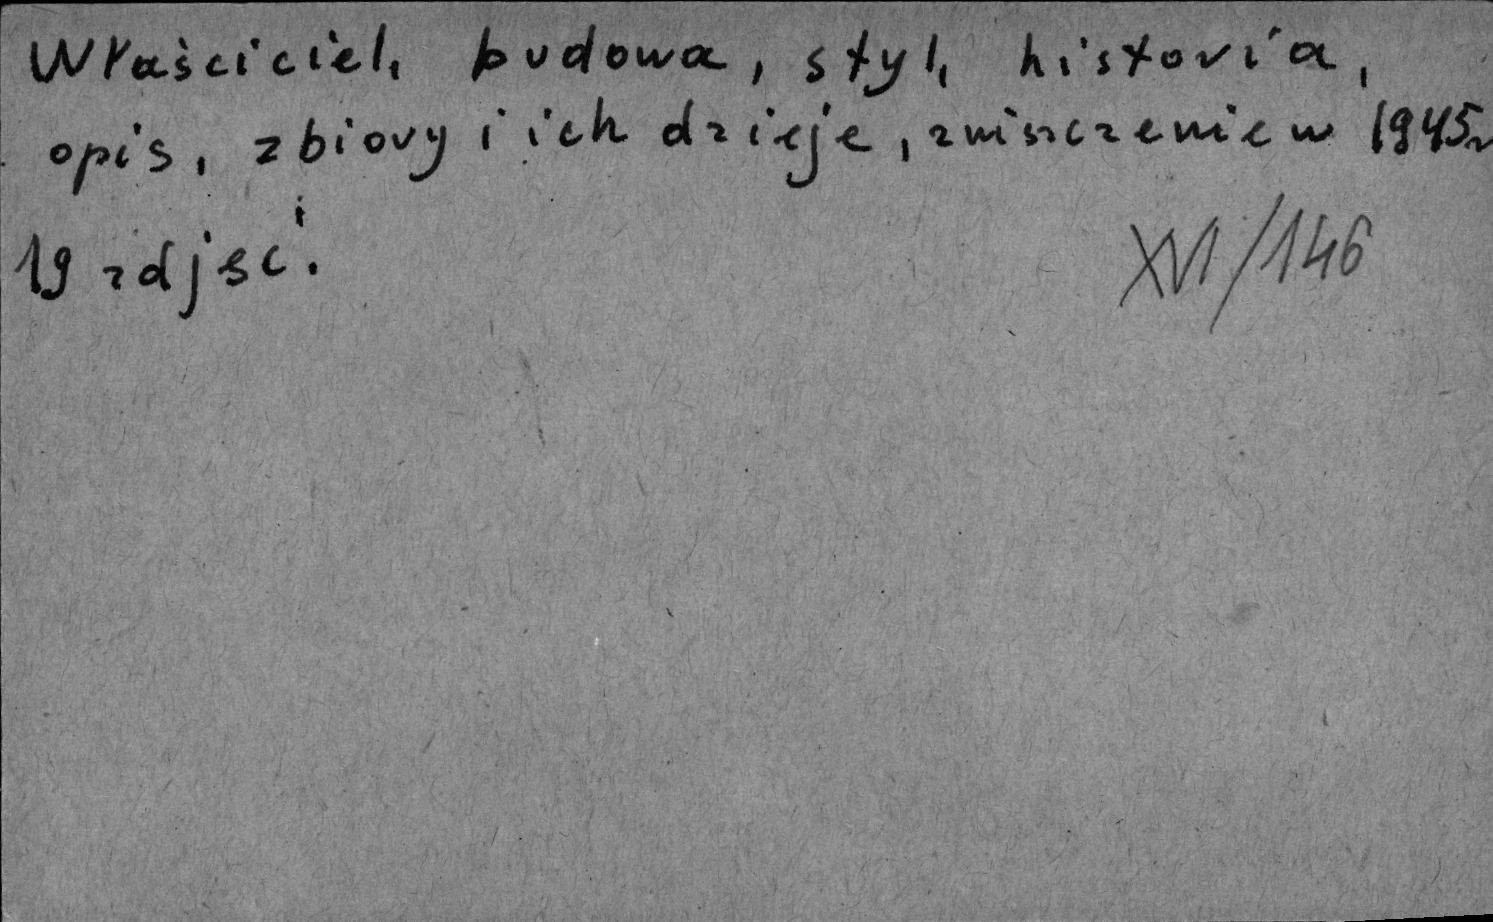 Właściciel, budowa, styl, historia,
opis, zbiory i ich dzieje, zniszczenie w 1945r
19 zdjęć.
XVI/146